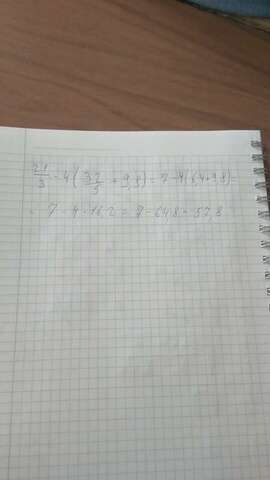 21/3 - 4(32/5 + 9,8) = 7 - 4(6,4+9,8) =
= 7 - 4 · 16,2 = 7 - 64,8 = -57,8